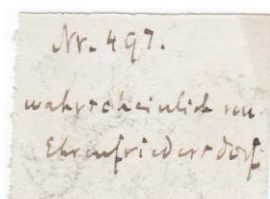 Nr. 497.
wahrscheinlich von
Ehrenfriedersdorf